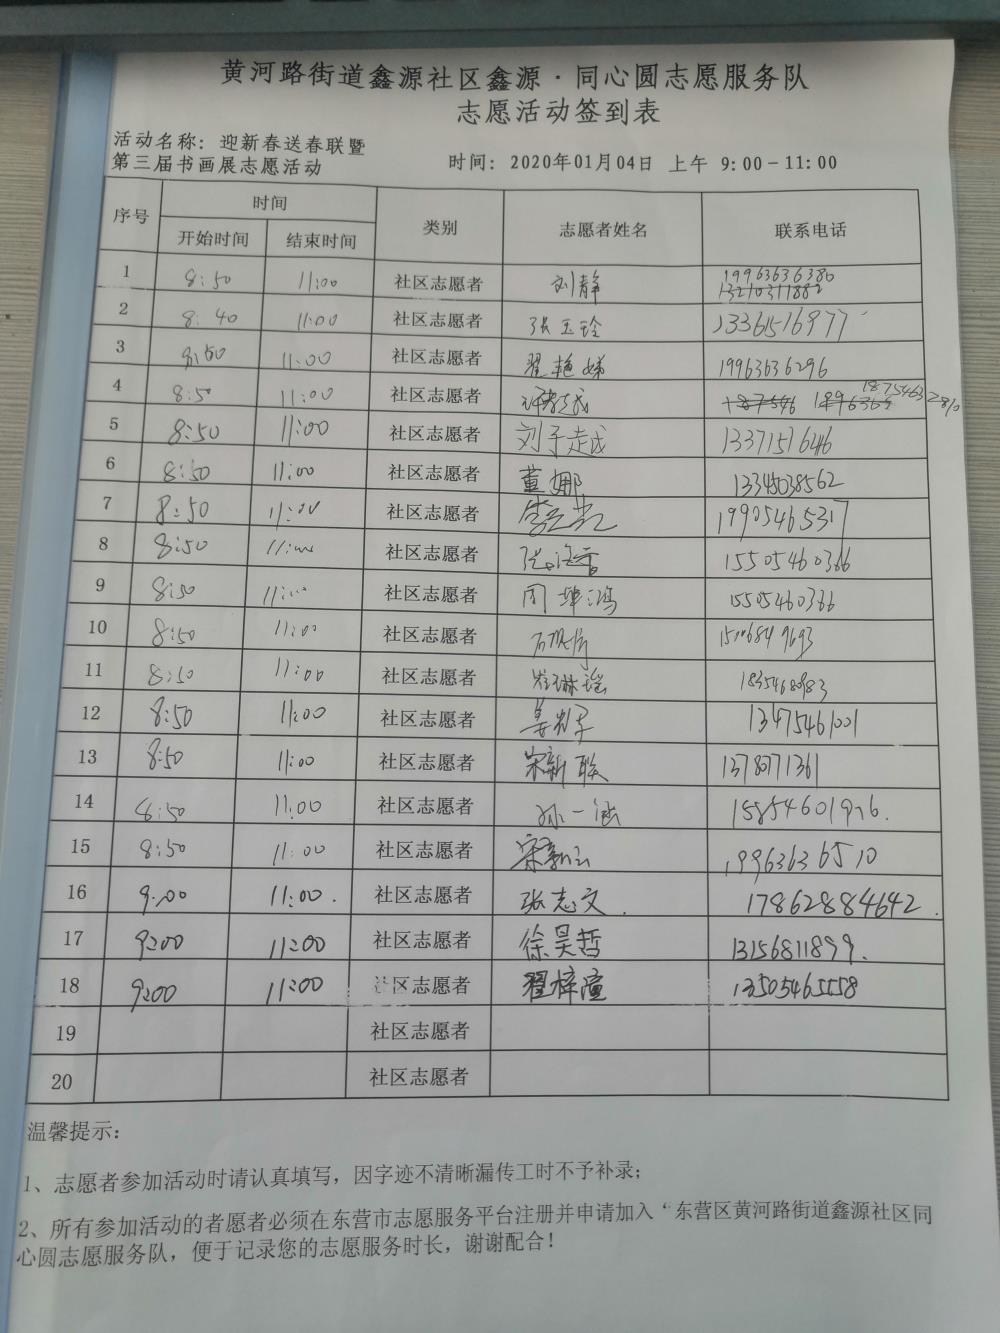 黄河路街道鑫源社区鑫源·同心圆志愿服务队
志愿活动签到表
活动名称：迎新春送春联暨
第三届书画展志愿活动
时间：2020年01月04日 上午 9:00-11:00
序号 时间 类别 志愿者姓名 联系电话
开始时间 结束时间
1 8:50 11:00 社区志愿者 刘静 19963636380
13210311882
2 8:40 11:00 社区志愿者 张玉玲 13361516977
3 8:50 11:00 社区志愿者 翟艳娣 19963636296
4 8:50 11:00 社区志愿者
5 8:50 11:00 社区志愿者 刘于走成 13371517646
6 8:50 11:00 社区志愿者 董娜 13345038562
7 8:50 11:00 社区志愿者 19905465317
8 8:50 11:00 社区志愿者 张海香 15505460366
9 8:50 11:00 社区志愿者 周 鸿 15505460366
10 8:50 11:00 社区志愿者
11 8:50 11:00 社区志愿者 崔琳瑶
12 8:50 11:00 社区志愿者 13475461001
13 8:50 11:00 社区志愿者 宋新联 1378071361
14 8:50 11:00 社区志愿者 孙一涵 15854601926.
15 8:50 11:00 社区志愿者 宋新云 19963636510
16 9:00 11:00. 社区志愿者 张志文. 17862884642.
17 9:00 11:00 社区志愿者 徐昊哲 13156811899.
18 9:00 11:00 社区志愿者 翟梓潼 13505465558
19 社区志愿者
20 社区志愿者
温馨提示：
1、志愿者参加活动时请认真填写，因字迹不清晰漏传工时不予补录；
2、所有参加活动的者愿者必须在东营市志愿服务平台注册并申请加入“东营区黄河路街道鑫源社区同
心圆志愿服务队，便于记录您的志愿服务时长，谢谢配合！